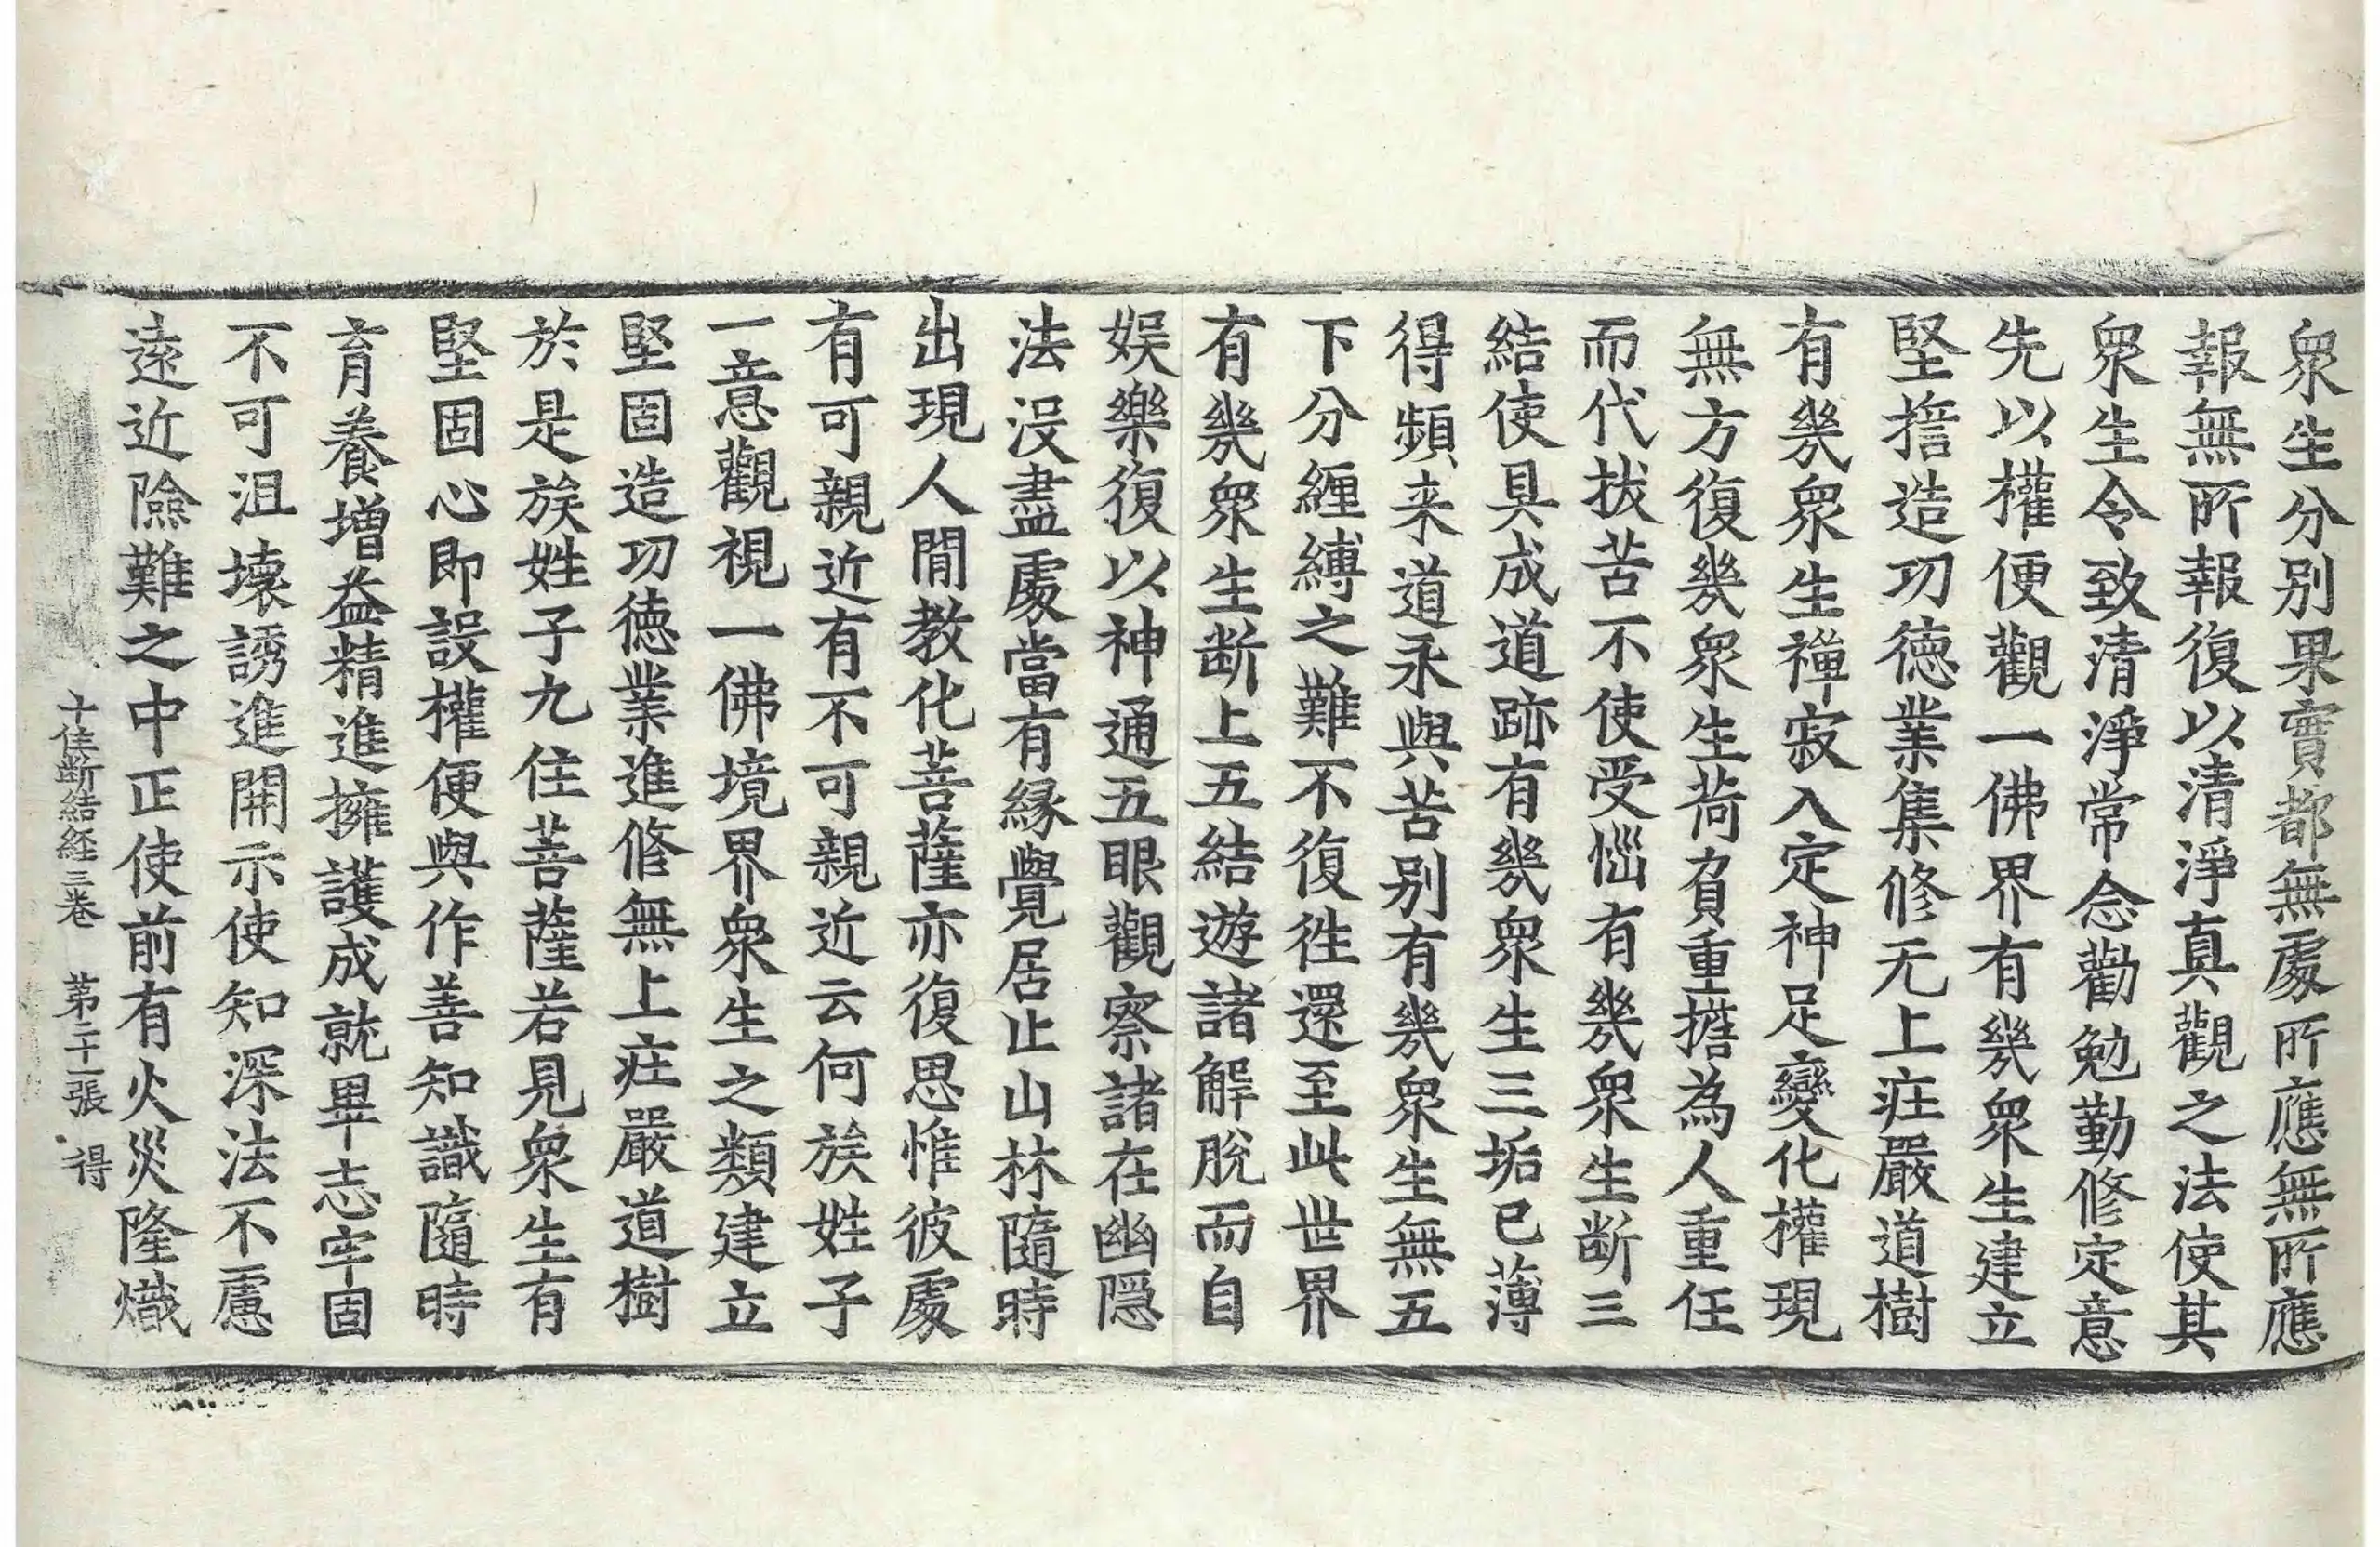 衆生分別果實都無處所應無所應
報無所報復以清淨真觀之法使其
衆生令致清淨常念勸勉勤修定意
先以權便觀一佛界有幾衆生建立
堅擔造功德業集修无上庄嚴道樹
有幾衆生禪寂入定神足變化權現
無方復幾衆生荷負重擔為人重任
而代拔苦不使受惱有幾衆生断三
結使具成道跡有幾衆生三垢已薄
得頻来道永與苦别有幾衆生無五
下分纏縛之難不復往還至此世界
有幾衆生断上五結遊諸解脫而自
娛樂復以神通五眼觀察諸在幽隱
法没盡處當有緣覺居止山林隨時
出現人間教化菩薩亦復思惟彼處
有可親近有不可親近云何族姓子
一意觀視一佛境界衆生之類建立
堅固造功德業進修無上庄嚴道樹
於是族姓子九住菩薩若見衆生有
堅固心即設權便與作善知識隨時
育養增益精進擁護成就畢志牢固
不可沮壞誘進開示使知深法不慮
遠近險難之中正使前有火災隆熾
十住断結経三卷 第二十一張 得